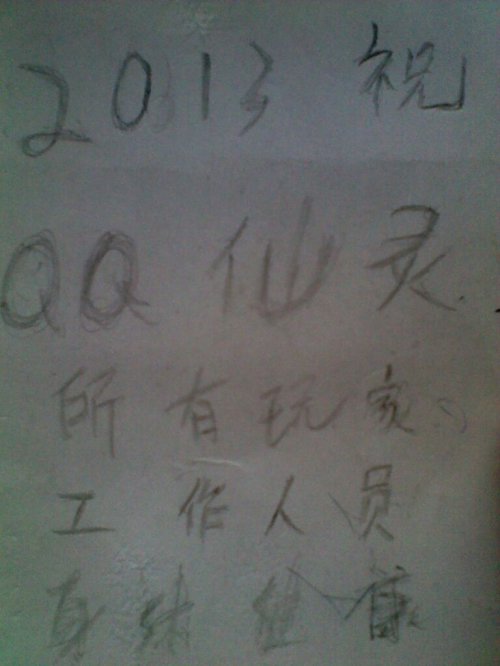 2013 祝
QQ 仙灵
所有玩家
工作人员
身体健康